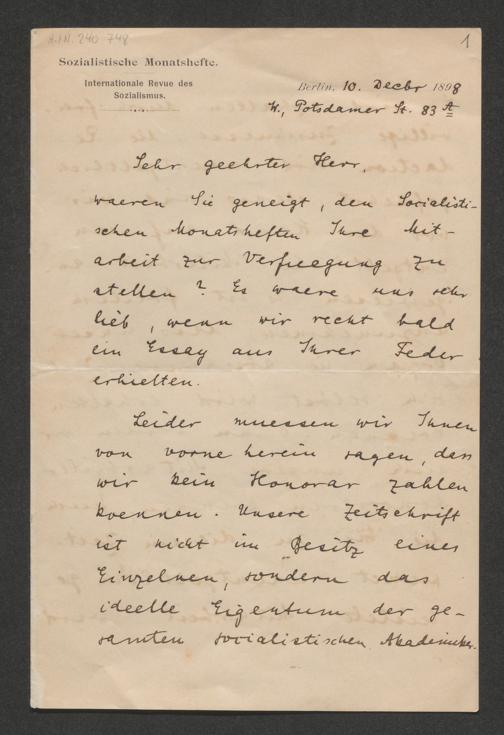 H.I.N. 240 748
1
Sozialistische Monatshefte.
Internationale Revue des
Sozialismus.
Berlin, 10. Decbr 1898
W., Potsdamer St. 83 A
Sehr geehrter Herr,
waeren Sie geneigt, den Socialisti-
schen Monatsheften Ihre Mit-
arbeit zur Verfuegung zu
stellen? Es waere uns sehr
lieb, wenn wir recht bald
ein Essay aus Ihrer Feder
erhielten.
Leider muessen wir Ihnen
von vorne herein sagen, dass
wir kein Honorar zahlen
koennen. Unsere Zeitschrift
ist nicht im Besitz eines
Einzelnen, sondern das
ideelle Eigentum der ge-
samten socialistischen Akademiker.